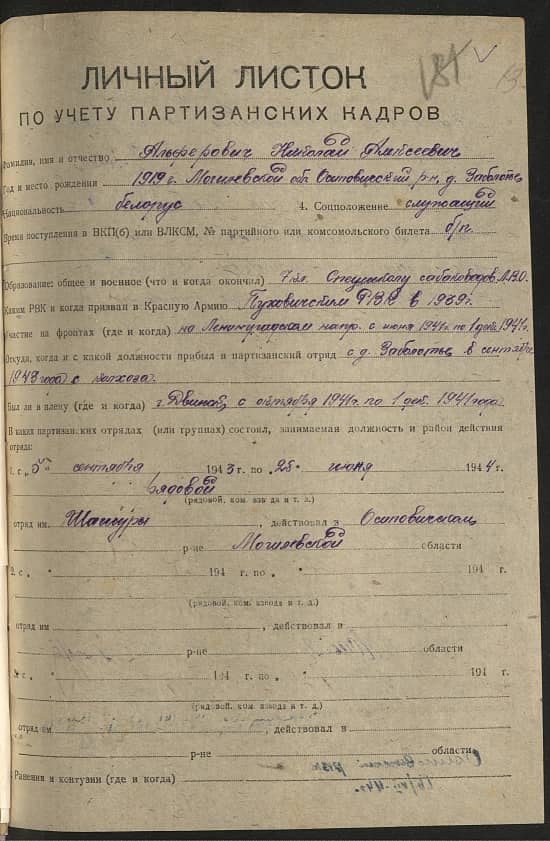 181 V
ЛИЧНЫЙ ЛИСТОК
ПО УЧЕТУ ПАРТИЗАНСКИХ КАДРОВ
Фамилия, имя и отчество Альферович Николай Алексеевич
Год и место рождения 1919 г. Могилевской обл. Осиповичский р-н, д. Заболоть
Национальность белорус 4. Соцположение служащий
Время поступления в ВКП(б) или ВЛКСМ, № партийного или комсомольского билета б/п
Образование: общее и военное (что и когда окончил) 7 кл. Спецшколу собаководов Л.В.О.
Каким РВК и когда призван в Красную Армию Пуховичским РВК в 1939 г.
Участие на фронтах (где и когда) на Ленинградском напр. с июня 1941 г. по 1941 г.
Откуда, когда и с какой должности прибыл в партизанский отряд с д. Заболотье в сентябре
1943 года с колхоза.
Был ли в плену (где и когда) г. Двинск, с октября 1941 г. по 1 дек. 1941 года
В каких партизанских отрядах (или группах) состоял, занимаемая должность и район действия
отряда:
1. с „5" сентября 1943 г. по „25" июня 1944 г.
рядовой
(рядовой, ком. взвода и т. д.)
отряд им. Шантуры, действовал в Осиповичском
р-не Могилевской области
2. с „ " 194 г. по „ " 194 г.
(рядовой, ком. взвода и т. д.)
отряд им , действовал в
р-не области
с „ " 194 г. по „ " 194 г.
(рядовой, ком. взвода и т. д.)
отряд им , действовал в
р-не области
Ранения и контузии (где и когда)
16/VII-44 г.